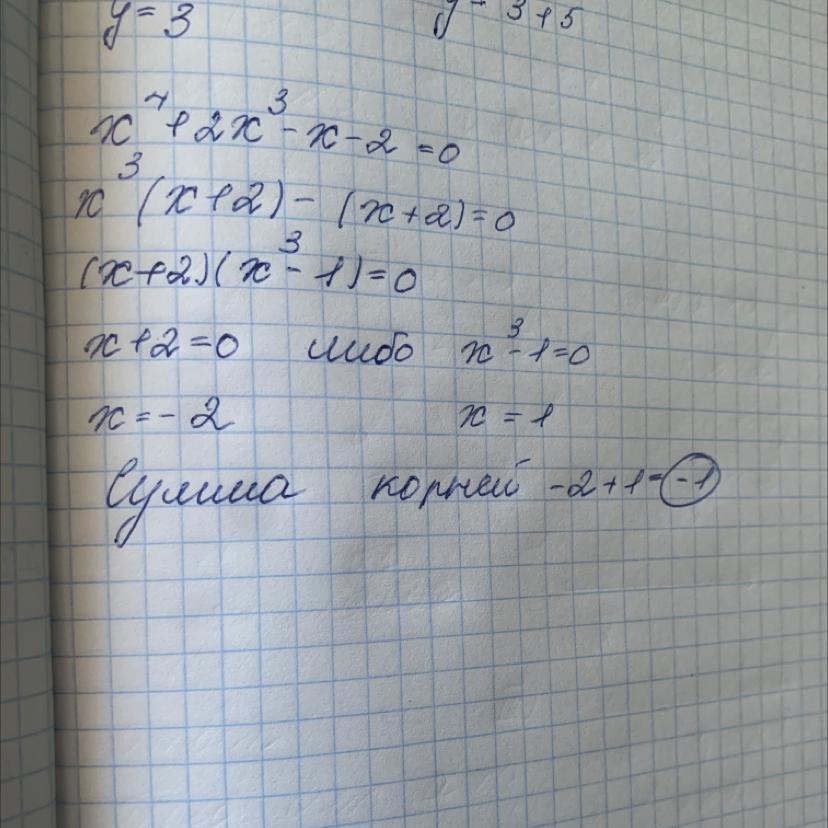 y = 3 y = 3 + 5
x⁴ + 2x³ - x - 2 = 0
x³ (x + 2) - (x + 2) = 0
(x + 2)(x³ - 1) = 0
x + 2 = 0 либо x³ - 1 = 0
x = - 2 x = 1
Сумма корней -2 + 1 = -1